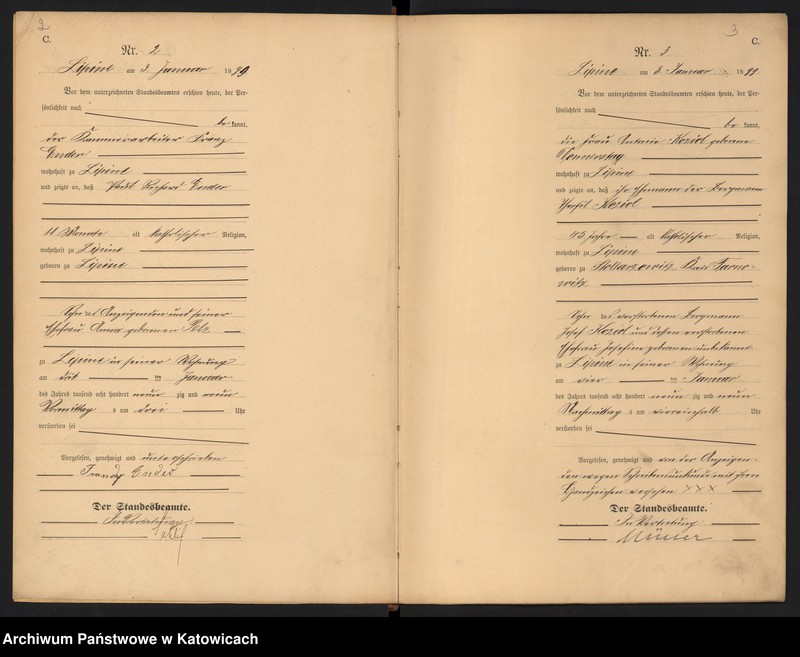 2
C.
Nr. 2
Lipine am 3. Januar 1899.
Vor dem unterzeichneten Standesbeamten erschien heute, der Per-
sönlichkeit nach
be kannt,
der Kammerarbeiter Franz
Ender
wohnhaft zu Lipine
und zeigte an, daß Paul Richard Ender
11 Monate alt katholischer Religion,
wohnhaft zu Lipine
geboren zu Lipine
Sohn des Anzeigenden und seiner
Ehefrau Anna geborenen
zu Lipine in seiner Wohnung
am Januar
des Jahres tausend acht hundert neun zig und neun
Vormittag s um drei Uhr
verstorben sei
Vorgelesen, genehmigt und unterschrieben
Ender
Der Standesbeamte.
In Vertretung
3
C.
Nr. 3
Lipine am 5. Januar 1899.
Vor dem unterzeichneten Standesbeamten erschien heute, der Per-
sönlichkeit nach
be kannt,
die Frau Antonie Koziol geborene
wohnhaft zu Lipine
und zeigte an, daß ihr Ehemann der Bergmann
Koziol
Jahre alt katholischer Religion,
wohnhaft zu Lipine
geboren zu Kreis Tarno-
witz
Sohn des verstorbenen Bergmann
Josef Koziol und dessen verstorbenen
Ehefrau Josefine geborenen unbekannt
zu Lipine in seiner Wohnung
am vier ten Januar
des Jahres tausend acht hundert neun zig und neun
Nachmittag s um viereinhalb Uhr
verstorben sei
Vorgelesen, genehmigt und von der Anzeigen-
den wegen Schreibensunkunde mit ihrem
Handzeichen versehen XXX
Der Standesbeamte.
In Vertretung
Archiwum Państwowe w Katowicach